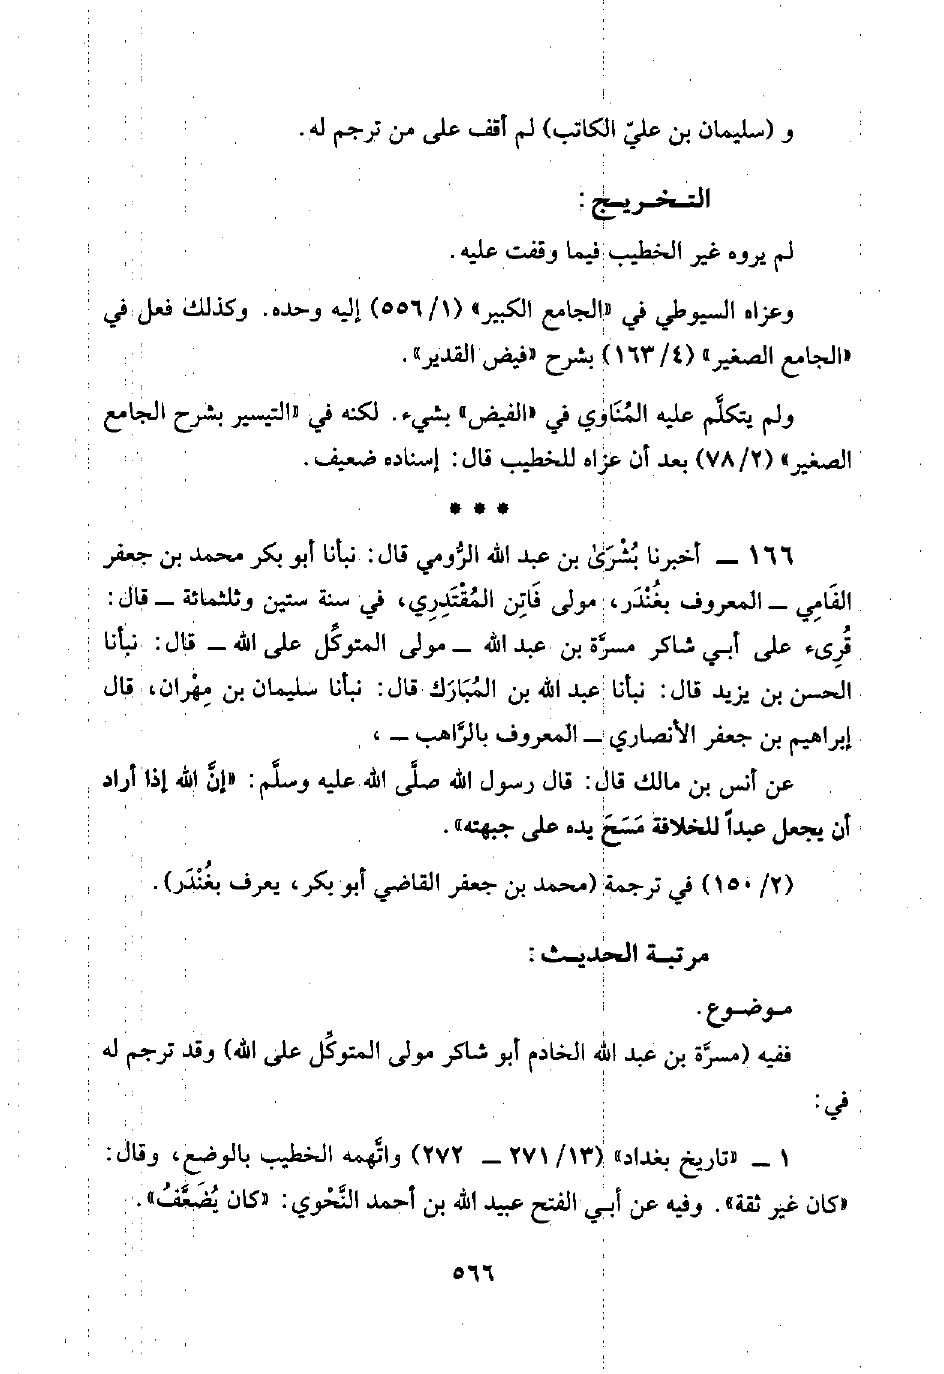 و (سليمان بن عليّ الكاتب) لم أقف على من ترجم له.
التـخـريـج:
لم يروه غير الخطيب فيما وقفت عليه.
وعزاه السيوطي في «الجامع الكبير» (٥٥٦/١) إليه وحده. وكذلك فعل في
«الجامع الصغير» (١٦٣/٤) بشرح «فيض القدير».
ولم يتكلَّم عليه المُنَاوي في «الفيض» بشيء. لكنه في «التيسير بشرح الجامع
الصغير» (٧٨/٢) بعد أن عزاه للخطيب قال: إسناده ضعيف.
* * *
١٦٦ ــ أخبرنا بُشْرَىٰ بن عبد الله الرُّومي قال: نبأنا أبو بكر محمد بن جعفر
الفَامِي ــ المعروف بغُنْدَر، مولى فَاتِن المُقْتَدِرِي، في سنة ستين وثلثمائة ــ قال:
قُرِىء على أبـي شاكر مسرَّة بن عبد الله ــ مولى المتوكِّل على الله ــ قال: نبأنا
الحسن بن يزيد قال: نبأنا عبد الله بن المُبَارَك قال: نبأنا سليمان بن مِهْران، قال
إبراهيم بن جعفر الأنصاري ــ المعروف بالرَّاهب ــ ،
عن أنس بن مالك قال: قال رسول الله صلَّى الله عليه وسلَّم: «إنَّ الله إذا أراد
أن يجعل عبداً للخلافة مَسَحَ يده على جبهته».
(١٥٠/٢) في ترجمة (محمد بن جعفر القاضي أبو بكر، يعرف بغُنْدَر).
مرتبـة الحديـث:
مـوضـوع.
ففيه (مسرَّة بن عبد الله الخادم أبو شاكر مولى المتوكِّل على الله) وقد ترجم له
في:
١ ــ «تاريخ بغداد» (٢٧١/١٣ ــ ٢٧٢) واتَّهمه الخطيب بالوضع، وقال:
«كان غير ثقة». وفيه عن أبـي الفتح عبيد الله بن أحمد النَّحْوي: «كان يُضَعَّفُ».
٥٦٦